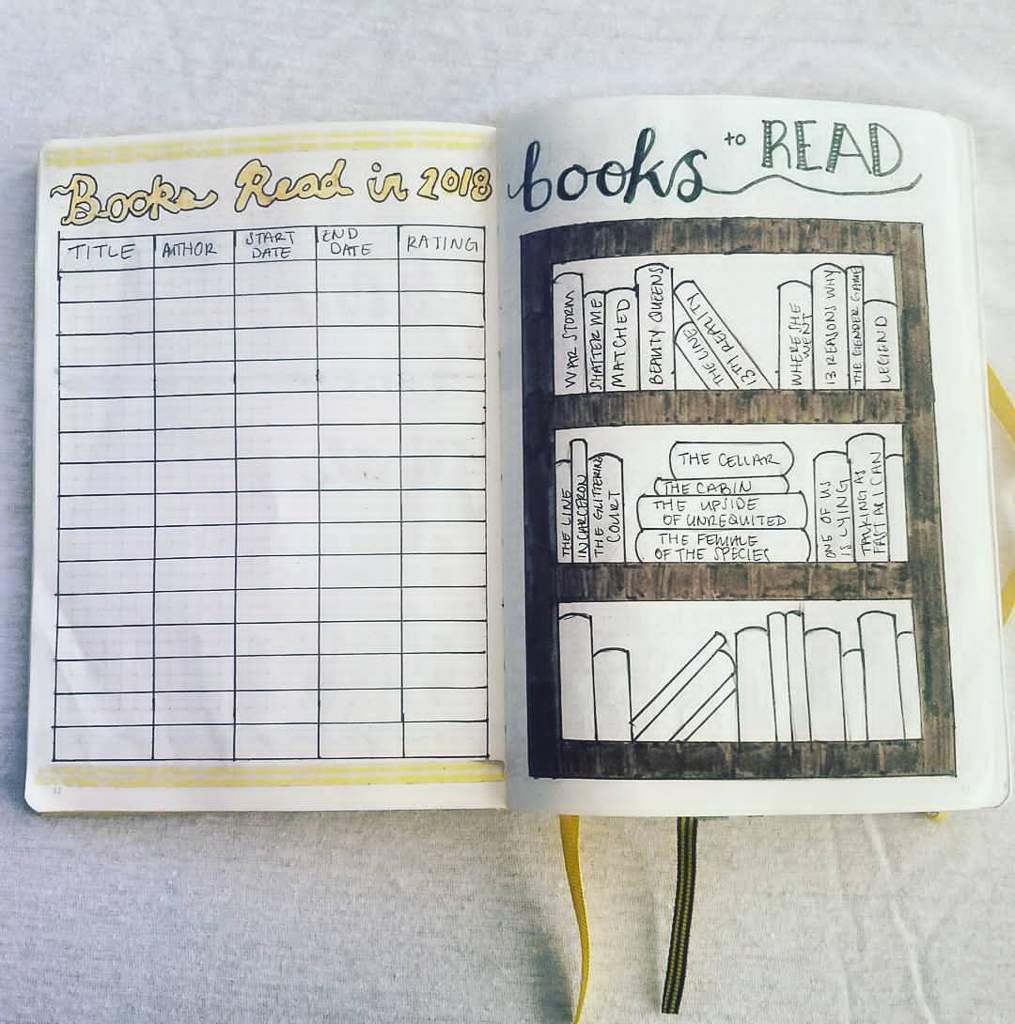 Books Read in 2018
TITLE
AUTHOR
START
DATE
END
DATE
RATING
books to READ
WAR STORM
SHATTER ME
MATCHED
BEAUTY QUEENS
THE LINE
13TH REALITY
WHERE SHE
WENT
13 REASONS WHY
THE GENDER GAME
LEGEND
THE LINE
INCARCERON
THE GLITTERING
COURT
THE CELLAR
THE CABIN
THE UPSIDE
OF UNREQUITED
THE FEMALE
OF THE SPECIES
ONE OF US
IS LYING
TALKING AS
FAST AS I CAN